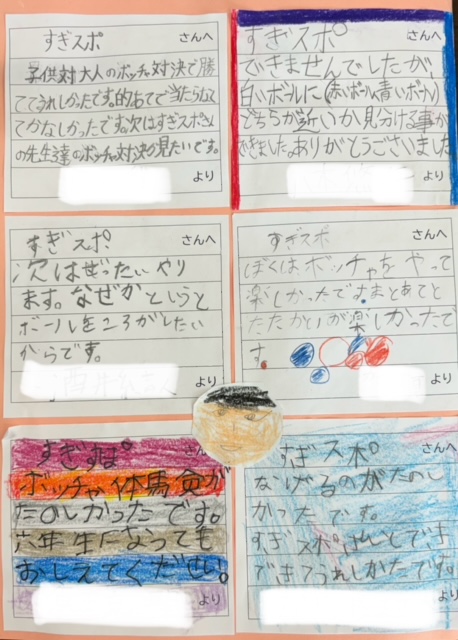 すぎスポ さんへ
子供対大人のボッチャ対決で勝
ててうれしかったです。的あてで当たらなく
てかなしかったです。次はすぎスポさん
の先生達のボッチャ対決が見たいです。
より
すぎスポ さんへ
できませんでしたが、
白いボールに(赤いボール青いボール)
どちらが近いか見分ける事が
できました。ありがとうございました
より
すぎスポ さんへ
次はぜったいやり
ます。なぜかというと
ボールをころがしたい
からです。
より
すぎスポ さんへ
ぼくはボッチャをやって
楽しかったですまとあてと
たたかいが楽しかったで
す。
より
すぎすぽ さんへ
ボッチャ体馬険が
たのしかったです。
六年生になっても
おしえてください。
より
すぎスポ さんへ
なげるのがたのし
かったです。
すぎスポさんとでき
できてうれしかたです。
より